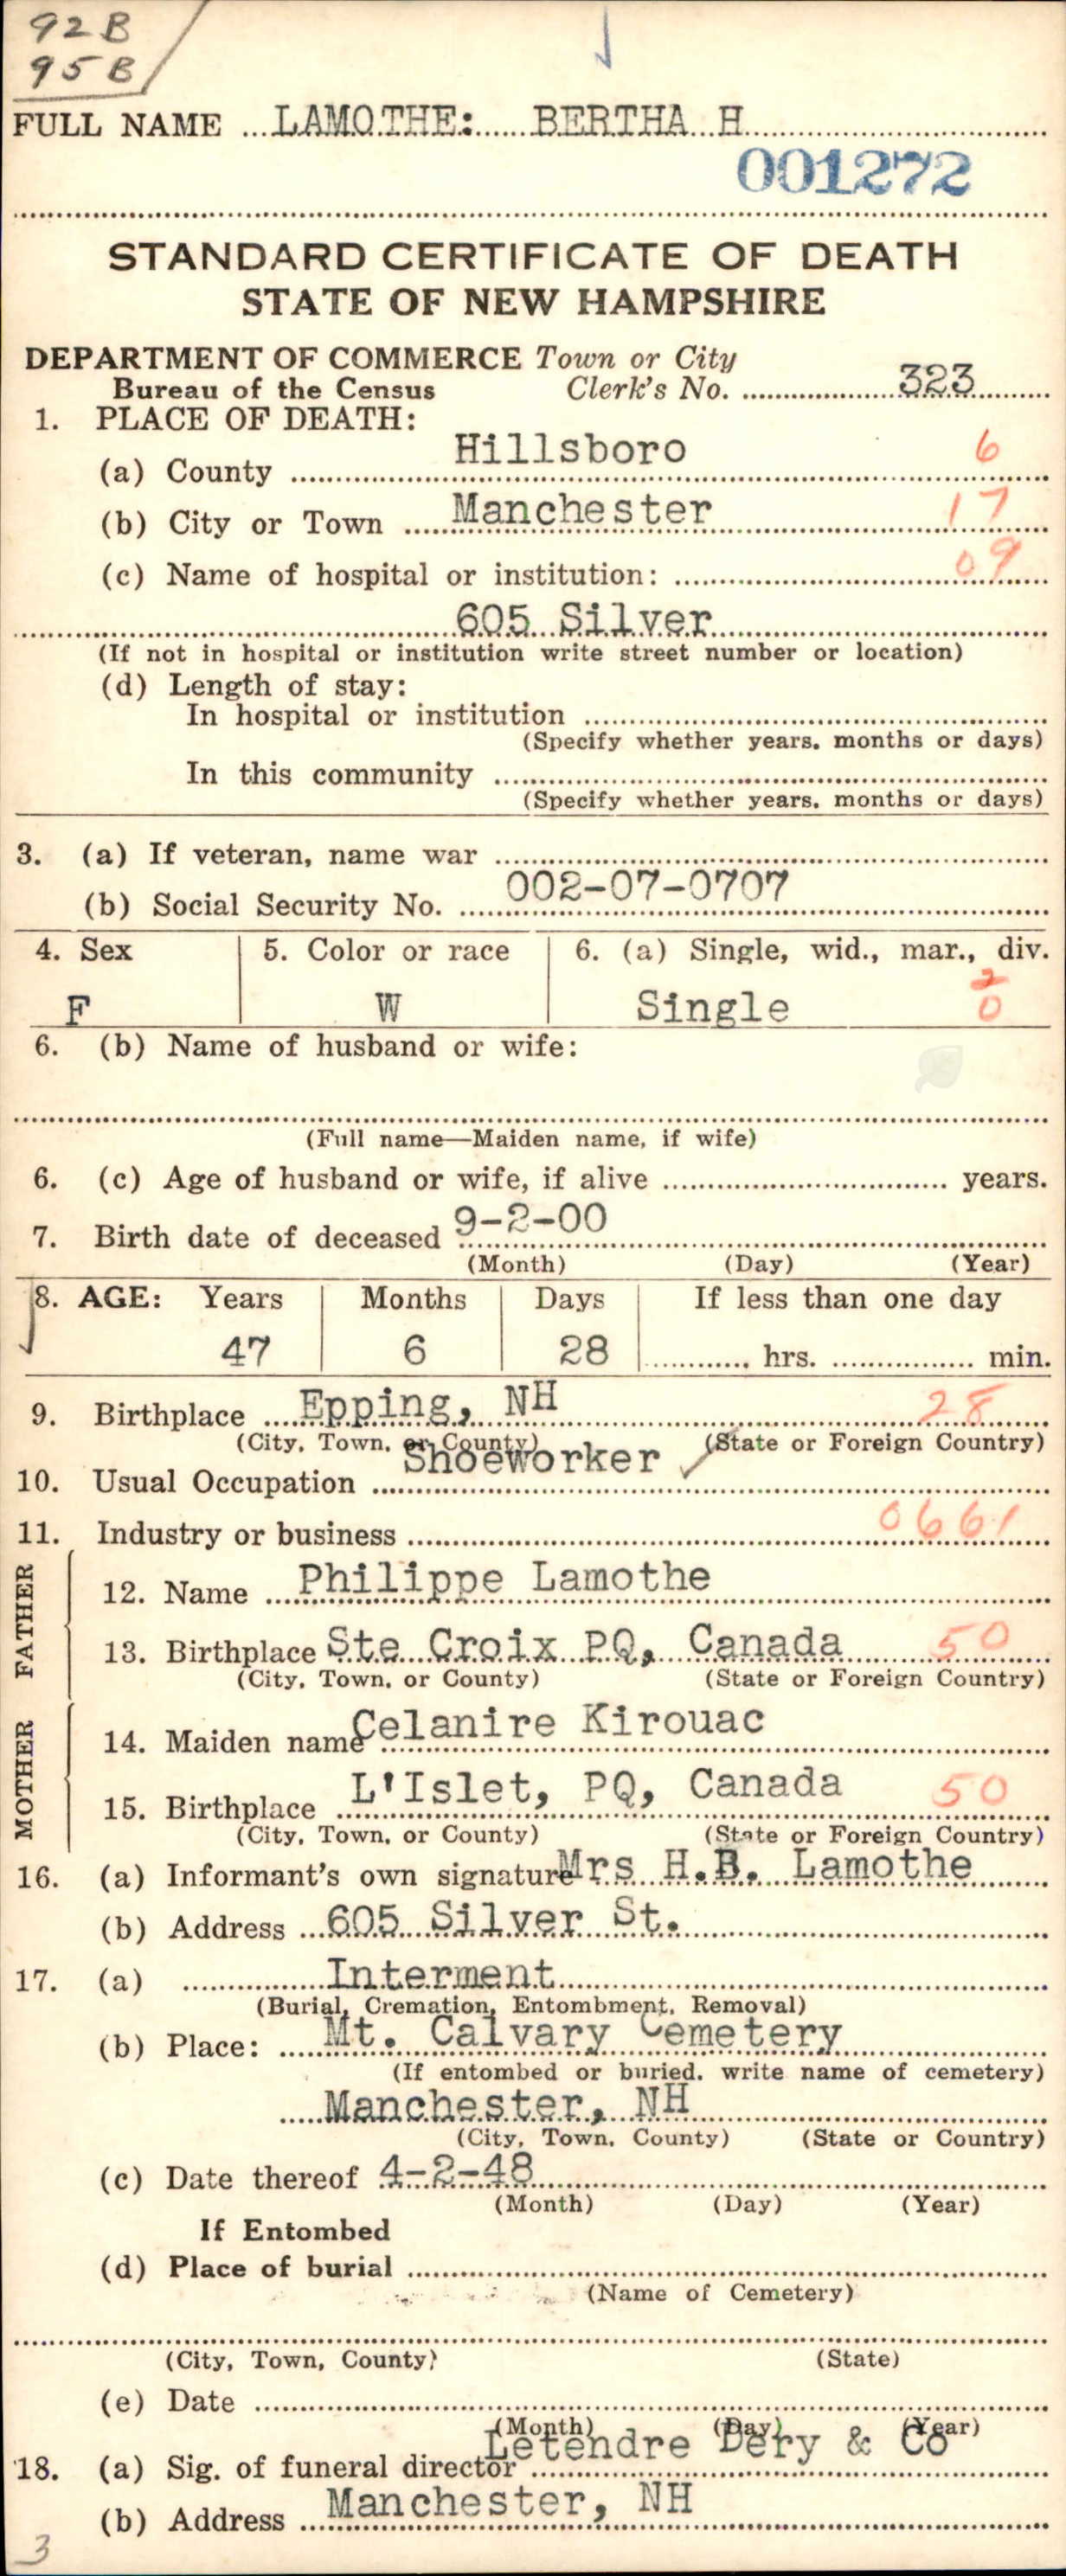 92B
95B
FULL NAME LAMOTHE: BERTHA H
001272
STANDARD CERTIFICATE OF DEATH
STATE OF NEW HAMPSHIRE
DEPARTMENT OF COMMERCE Town or City
Bureau of the Census Clerk's No. 323
1. PLACE OF DEATH:
(a) County Hillsboro 6
(b) City or Town Manchester 17
(c) Name of hospital or institution: 09
605 Silver
(If not in hospital or institution write street number or location)
(d) Length of stay:
In hospital or institution
(Specify whether years, months or days)
In this community
(Specify whether years, months or days)
3. (a) If veteran, name war
(b) Social Security No. 002-07-0707
4. Sex 5. Color or race 6. (a) Single, wid., mar., div.
2
F W Single 0
6. (b) Name of husband or wife:
(Full name—Maiden name, if wife)
6. (c) Age of husband or wife, if alive years.
7. Birth date of deceased 9-2-00
(Month) (Day) (Year)
8. AGE: Years Months Days If less than one day
47 6 28 hrs. min.
9. Birthplace Epping, NH 28
(City, Town, or County) (State or Foreign Country)
10. Usual Occupation Shoeworker
11. Industry or business 0661
FATHER
12. Name Philippe Lamothe
13. Birthplace Ste Croix PQ, Canada 50
(City, Town, or County) (State or Foreign Country)
MOTHER
14. Maiden name Celanire Kirouac
15. Birthplace L'Islet, PQ, Canada 50
(City, Town, or County) (State or Foreign Country)
16. (a) Informant's own signature Mrs H.B. Lamothe
(b) Address 605 Silver St.
17. (a) Interment
(Burial, Cremation, Entombment, Removal)
(b) Place: Mt. Calvary Cemetery
(If entombed or buried, write name of cemetery)
Manchester, NH
(City, Town, County) (State or Country)
(c) Date thereof 4-2-48
(Month) (Day) (Year)
If Entombed
(d) Place of burial
(Name of Cemetery)
(City, Town, County) (State)
(e) Date
(Month) (Day) (Year)
18. (a) Sig. of funeral director Letendre Dery & Co
(b) Address Manchester, NH
3